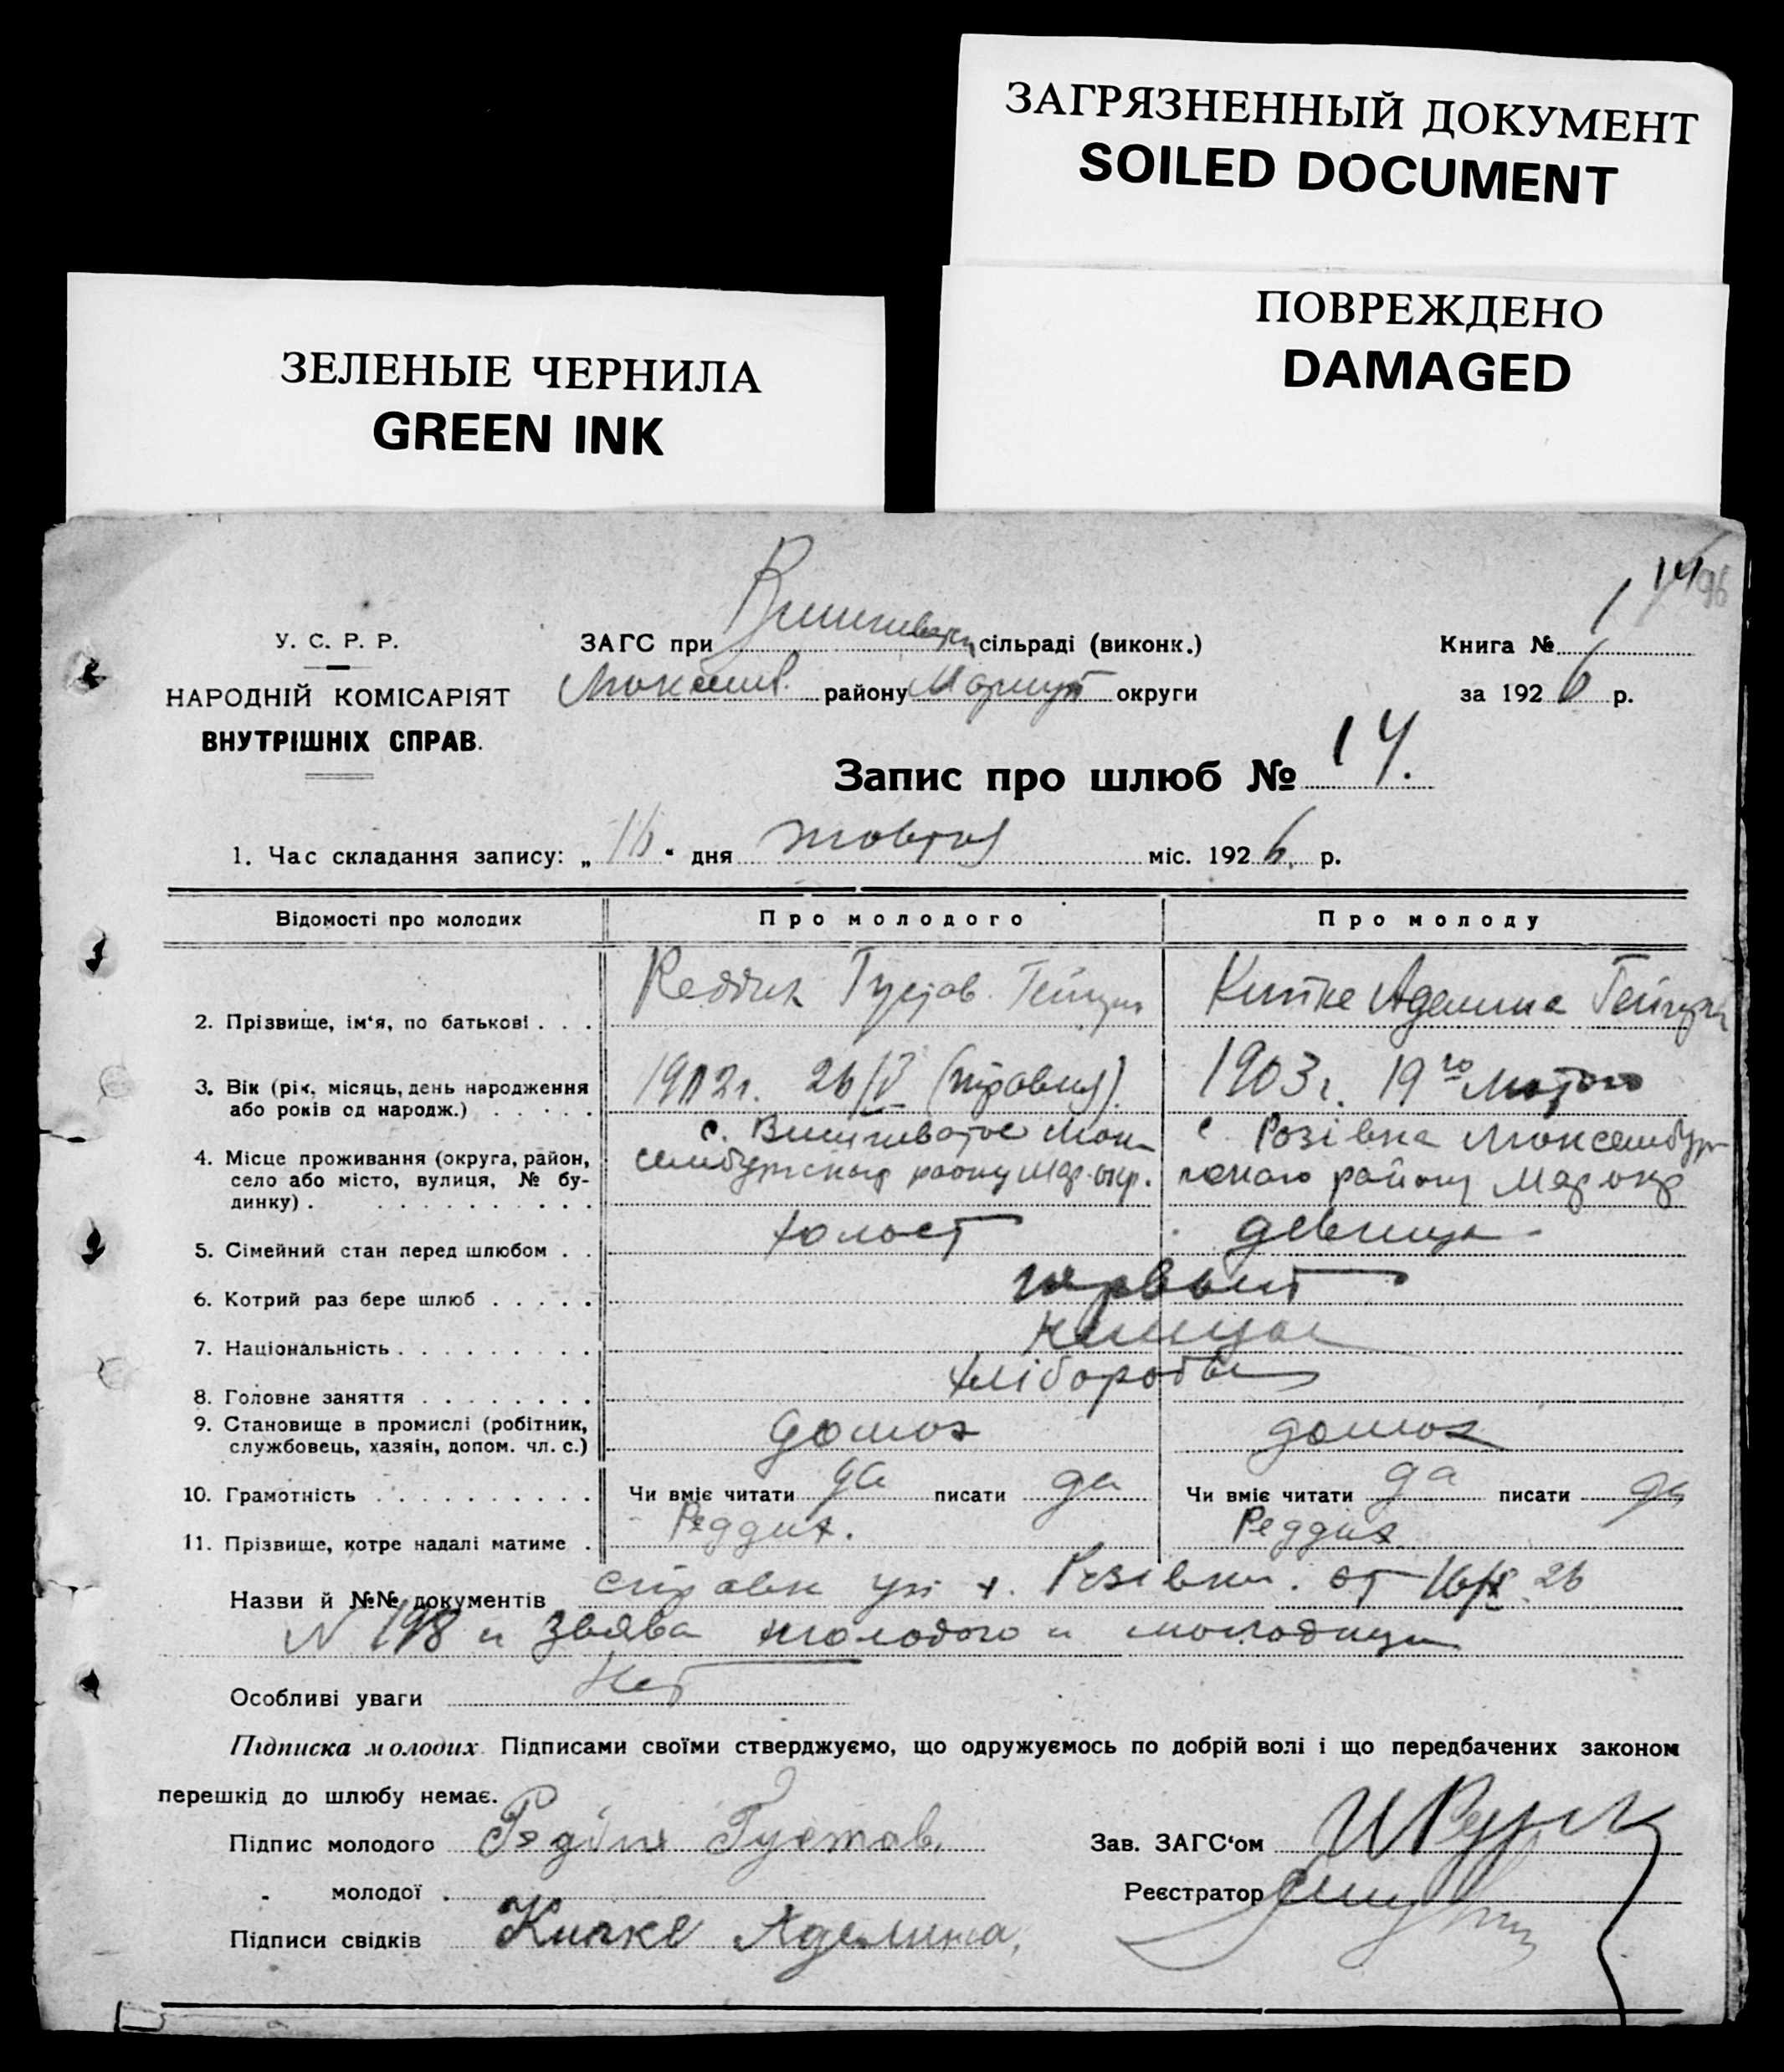 ЗАГРЯЗНЕННЫЙ ДОКУМЕНТ
SOILED DOCUMENT
ПОВРЕЖДЕНО
DAMAGED
ЗЕЛЕНЫЕ ЧЕРНИЛА
GREEN INK
У. С. Р. Р.
НАРОДНІЙ КОМІСАРІЯТ
ВНУТРІШНІХ СПРАВ.
ЗАГС при сільраді (виконк.)
району Маріуп округи
Книга № 1
за 1926 р.
Запис про шлюб № 14.
1. Час складання запису: „16“ дня жовтня міс. 1926 р.
Відомості про молодих Про молодого Про молоду
2. Прізвище, ім‘я, по батькові . . . Реддих Густав Гейнрих Кипке Аделина Гейнрих
3. Вік (рік, місяць, день народження 1902 г. 26/V (травня). 1903 г. 19го Лютого
або років од народж.) . . . . .
4. Місце проживання (округа, район, с. Вишневатое с. Розівка
село або місто, вулиця, № бу- району Мар. окр. району Мар окр
динку) . . . . . . . . . . .
5. Сімейний стан перед шлюбом . . холост девица
6. Котрий раз бере шлюб . . . . . первый
7. Національність . . . . . . . . . немцы
8. Головне заняття . . . . . . . . хлібороби
9. Становище в промислі (робітник, домох домох
службовець, хазяін, допом. чл. с.)
10. Грамотність . . . . . . . . . . Чи вміє читати да писати да Чи вміє читати да писати да
11. Прізвище, котре надалі матиме . Реддих. Реддих
Назви й №№ документів справки Розівки. от 16/X 26
N 198 и звява молодого и молодицы
Особливі уваги Нет
Підписка молодих. Підписами своїми стверджуємо, що одружуємось по добрій волі і що передбачених законом
перешкід до шлюбу немає.
Підпис молодого Реддих Густав. Зав. ЗАГС‘ом
„ молодої . Реєстратор
Підписи свідків Кипке Аделина,